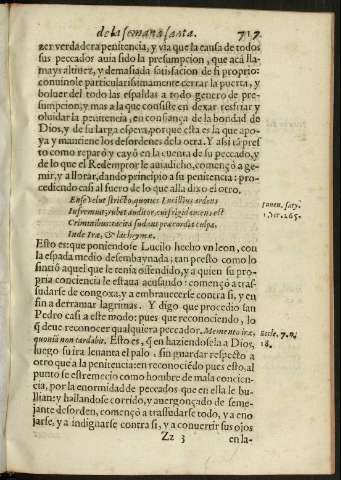 de la semana santa. 717.
zer verdadera penitencia, y via que la causa de todos
sus peccador auia sido la presumpcion, que acà lla-
mays altiuez, y demasiada satisfacion de si proprio:
conuinole particularissimamente cerrar la puerta, y
boluer del todo las espaldas a todo genero de pre-
sumpcion, y mas a la que consiste en dexar resfriar y
oluidar la penitencia, en confiança de la bondad de
Dios, y de su larga espera, porque esta es la que apo-
ya y mantiene los desordenes de la otra. Y assi tã pres
to como reparò y cayò en la cuenta de su peccado, y
de lo que el Redemptor le auia dicho, començò a ge-
mir, y a llorar, dando principio a su penitencia: pro-
cediendo casi al fuero de lo que alla dixo el otro.
Ense velut stricto, quoties Lucilius ardens
Infremuit, rubet auditor, cui frigida mens est
Criminibus: tacita sudant præcordia culpa.
Inde Iræ, & lachrymæ.
Iuuen. saty.
1. ver. 165.
Esto es: que poniendose Lucilo hecho vn leon, con
la espada medio desembaynada; tan presto como lo
sintiò aquel que le tenia offendido, y a quien su pro-
pria conciencia le estaua acusando: començò a tras-
sudarse de congoxa, y a embrauecerse contra si, y en
fin a derramar lagrimas. Y digo que procedio san
Pedro casi a este modo: pues que reconociendo, lo
q̃ deue reconocer qualquiera peccador. Memento iræ,
quoniã non tardabit. Esto es, q̃ en haziendosela a Dios,
Eccle. 7. n.
18.
luego su ira leuanta el palo, sin guardar respecto a
otro que a la penitencia: en reconociẽdo pues esto, al
punto se estremecio como hombre de mala concien-
cia, por la enormidad de peccados que en ella le bu-
llian: y hallandose corrido, y auergonçado de seme-
jante desorden, començò a trassudarse todo, y a eno
jarse, y a indignarse contra si, y a conuertir sus ojos
Zz 3 en la-